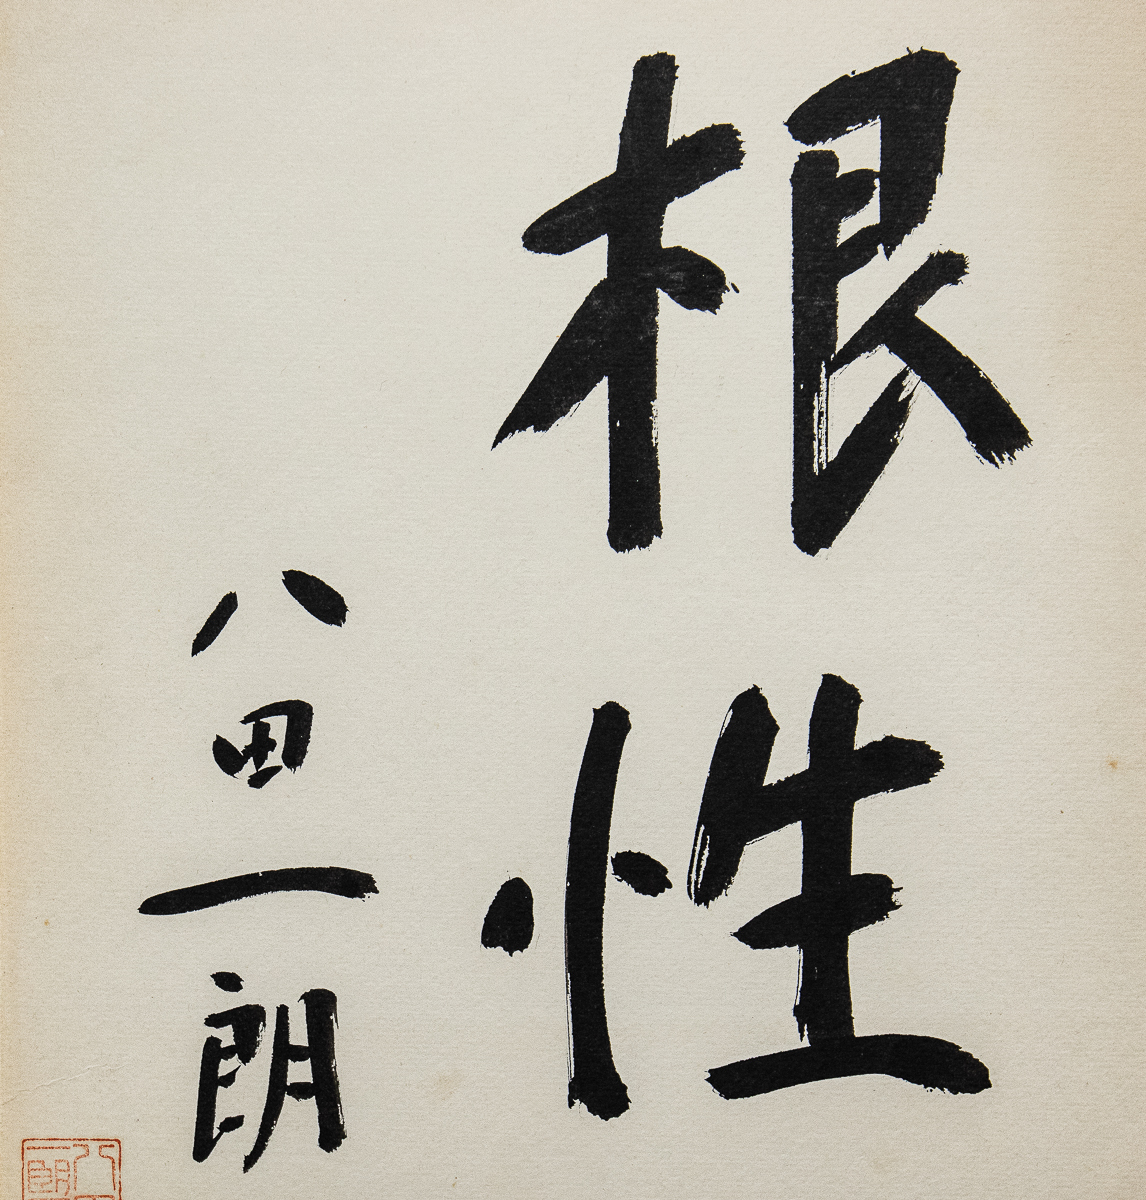 根性
八田一朗